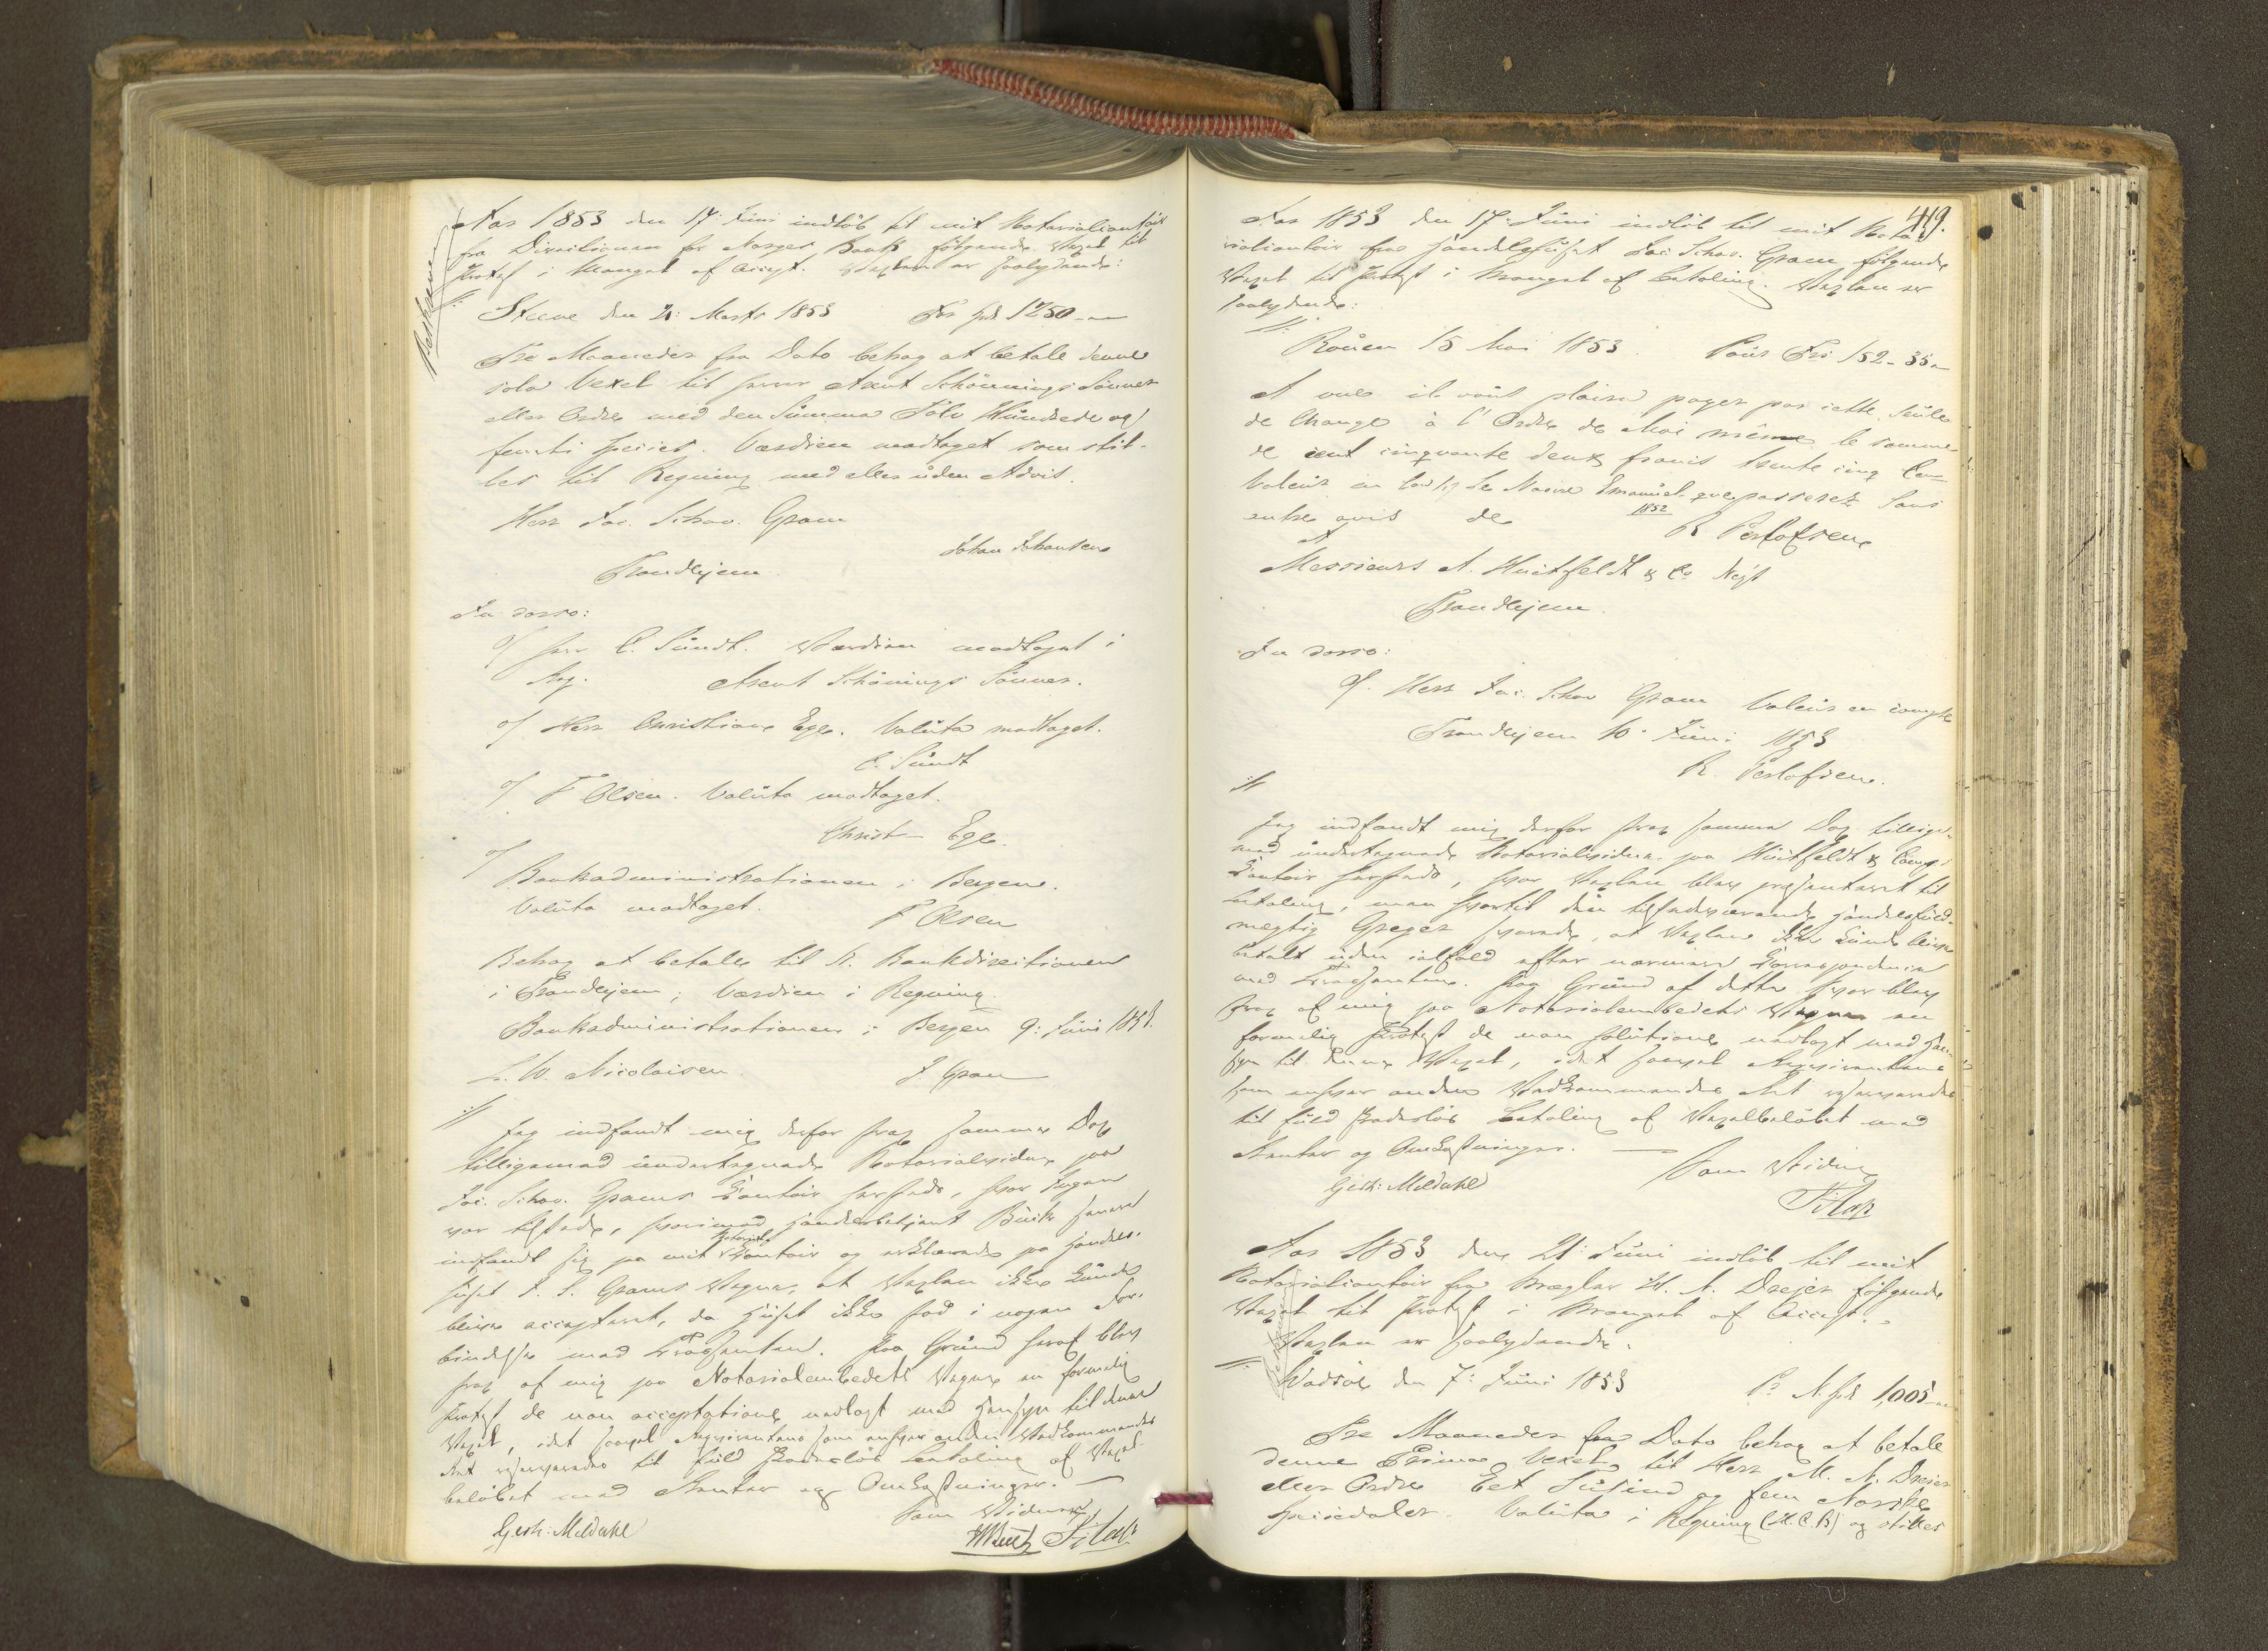 Beskreven
Aar 1853 den 17: Juni indløb til mit Notarialcontoir
fra Direktionen for Norges Bank følgende Vexel til
Protest i Mangel af Accept. Vexlen er saalydende:
//: Steene den 21: Marts 1853 For Spd 1250 -
Tre Maaneder fra Dato behag at betale denne
sola Vexel til Herrer Arent Schönnings Sönner
eller Ordre med den Summa Tolv Hundrede og
femti Species. Værdien modtaget som stil-
les til Regning med eller uden Advis.
Herr Jac. Schav. Gram
Johan Johansen
Trondhjem
In dorso:
o/ Herr C. Sundt. Værdien modtaget i
Reg. Arent Schönings Sönner.
o/ Herr Christian Ege. Valuta modtaget.
C. Sundt
o/ F Olsen. Valuta modtaget.
Christ Ege.
o/ Bankadministrationen i Bergen.
Valuta modtaget. F Olsen
Behag at betale til N. Bankdirectionen
i Trondhjem; Værdien i Regning
Bankadministrationen i Bergen 9: Juni 1853.
L. W. Nicolaisen. J Gran
:// Jeg indfandt mig derfor strax samme Dag
tilligemed undertegnede Notarialvidne paa
Jac. Schav. Grams Contoir hersteds, hvor Ingen
var tilstede, hvorimod Handelsbetjent Buck senere
indfandt sig paa mit Notarial Contoir og erklærede paa Handels-
huset J. S. Grams Vegne, at Vexlen ikke kunde
blive accepteret, da Huset ikke stod i nogen For-
bindelse med Trassenten. Paa Grund heraf blev
strax af mig paa Notarialembedets Vegne en formelig
Protest de non acceptatione nedlagt med Hensyn til denne
Vexel, idet saavel Requirentens som enhver anden Vedkommendes
Ret reserveredes til fuld skadesløs Betaling af Vexel-
beløbet med Renter og Omkostninger. —
Som Vidne
Gerh: Meldahl

419.
Aar 1853 den 17: Juni indløb til mit Nota-
rialcontoir fra Handelshuset Jac. Schav. Gram følgende
Vexel til Protest i Mangel af Betaling. Vexlen er
saalydende:
//: Rouen 15 Mai 1853. Pour Frs 152-35 -
A vue il vous plaira payer par cette seule
de Change à l'Ordre de Moi même la somme
de cent cinquante deux francs trente cinq Cen-
Valeur en Le Navire Emanuel que passerez Sans
1852
autre avis de
Messieurs A. Huitfeldt & Co Negt
Trondhjem.
In dorso:
o/. Herr Jac. Schav Gram Valeur en compte
Trondhjem 10. Juni 1853
://
Jeg indfandt mig derfor strax samme Dag tillige-
med undertegnede Notarialvidne paa Huitfeldt & Comp.
Contoir hersteds, hvor Vexlen blev præsenteret til
Betaling, men hvortil den tilstedeværende Handelsfuld-
mægtig Greger svarede, at Vexlen ikke kunde blive
betalt uden ialfald efter nærmere Correspondence
med Trassenten. Paa Grund af dette Svar blev
strax af mig paa Notarialembedets Vegne en
formelig Protest de non solutione nedlagt med Hen-
syn til denne Vexel, idet saavel Requirentens
som enhver anden Vedkommendes Ret reserveredes
til fuld skadesløs Betaling af Vexelbeløbet med
Renter og Omkostninger. —
Som Vidne
Gerh: Meldahl
Aar 1853 den 21: Juni indløb til mit
Notarialcontoir fra Mægler H. A. Drejer følgende
Vexel til Protest i Mangel af Accept.
Vexlen er saalydende.
//: Wadsöe den 7: Juni 1853 Po N. Spd 1,005 -
Tre Maaneder fra Dato behag at betale
denne Prima Vexel til Herr M. A. Dreier
eller Ordre Eet Tusind og fem Norske
Speciedaler. Valuta i Regning og stilles